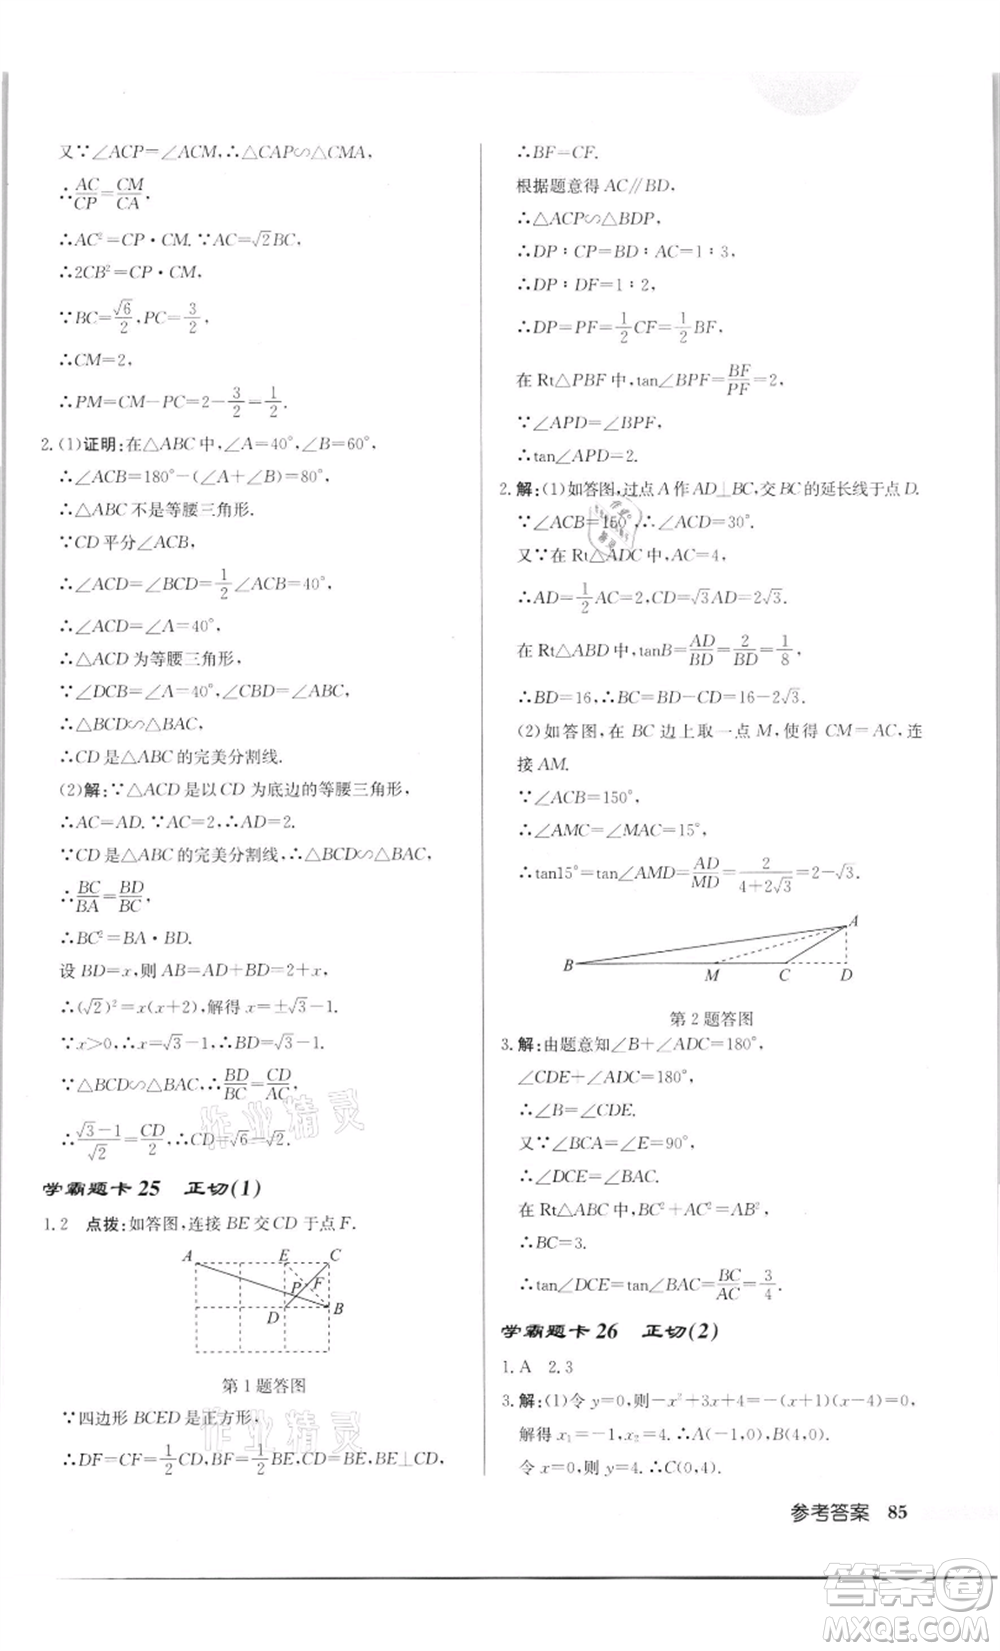 又∵∠ACP=∠ACM,∴△CAP∽△CMA,
∵AC/CP=CM/CA.
∴AC²=CP·CM.∵AC=√2BC,
∴2CB²=CP·CM,
∵BC=√6/2,PC=3/2,
∴CM=2,
∴PM=CM-PC=2-3/2=1/2.
2.(1)证明:在△ABC中,∠A=40°,∠B=60°,
∴∠ACB=180°-(∠A+∠B)=80°,
∴△ABC不是等腰三角形.
∵CD平分∠ACB,
∴∠ACD=∠BCD=1/2∠ACB=40°,
∴∠ACD=∠A=40°,
∴△ACD为等腰三角形,
∵∠DCB=∠A=40°,∠CBD=∠ABC,
∴△BCD∽△BAC,
∴CD是△ABC的完美分割线.
(2)解:∵△ACD是以CD为底边的等腰三角形,
∴AC=AD.∵AC=2,∴AD=2.
∵CD是△ABC的完美分割线,∴△BCD∽△BAC,
∴BC/BA=BD/BC,
∴BC²=BA·BD.
设BD=x,则AB=AD+BD=2+x,
∴(√2)²=x(x+2),解得x=±√3-1.
∵x>0,∴x=√3-1,∴BD=√3-1.
∵△BCD∽△BAC,∴BD/BC=CD/AC,
∴√3-1/√2=CD/2,∴CD=√6-√2.
学霸题卡25 正切(1)
1.2 点拨:如答图,连接BE交CD于点F.
A E C
P F
D B
第1题答图
∵四边形BCED是正方形,
∴DF=CF=1/2CD,BF=1/2BE,CD=BE,BE⊥CD,
∴BF=CF.
根据题意得AC∥BD,
∴△ACP∽△BDP,
∴DP:CP=BD:AC=1:3,
∴DP:DF=1:2,
∴DP=PF=1/2CF=1/2BF,
在Rt△PBF中,tan∠BPF=BF/PF=2,
∵∠APD=∠BPF,
∴tan∠APD=2.
2.解:(1)如答图,过点A作AD⊥BC,交BC的延长线于点D.
∵∠ACB=150°,∴∠ACD=30°.
又∵在Rt△ADC中,AC=4,
∴AD=1/2AC=2,CD=√3AD=2√3.
在Rt△ABD中,tanB=AD/BD=2/BD=1/8,
∴BD=16,∴BC=BD-CD=16-2√3.
(2)如答图,在BC边上取一点M,使得CM=AC,连
接AM.
∵∠ACB=150°,
∴∠AMC=∠MAC=15°,
∴tan15°=tan∠AMD=AD/MD=2/4+2√3=2-√3.
A
B M C D
第2题答图
3.解:由题意知∠B+∠ADC=180°,
∠CDE+∠ADC=180°,
∴∠B=∠CDE.
又∵∠BCA=∠E=90°,
∴∠DCE=∠BAC,
在Rt△ABC中,BC²+AC²=AB²,
∴BC=3.
∴tan∠DCE=tan∠BAC=BC/AC=3/4.
学霸题卡26 正切(2)
1.A 2.3
3.解:(1)令y=0,则-x²+3x+4=0,
解得x₁=-1,x₂=4,∴A(-1,0),B(4,0),
令x=0,则y=4.∴C(0,4).
参考答案 85
作业精灵
作业精灵
答案卷
MXQE.COM